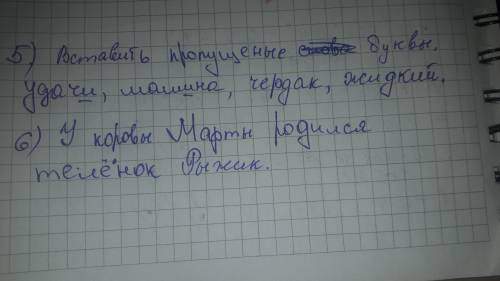 5) Вставить пропущеные буквы.
удачи, машина, чердак, жидкий.
6) У коровы Марты родился
телёнок Рыжик.